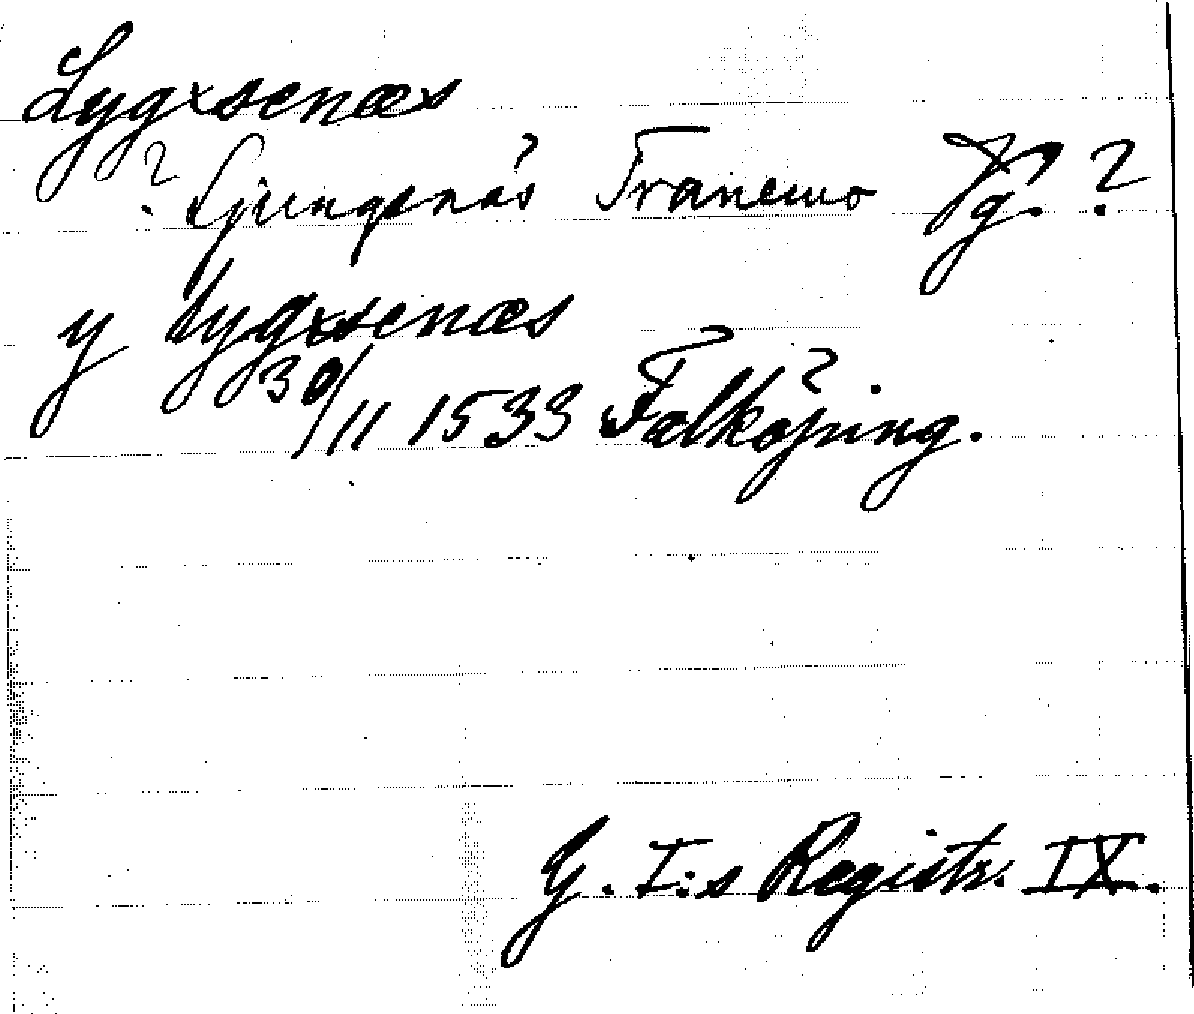 Lygxsenæs
? Ljungsnäs Tranemo Vg. ?
y Lygxsenæs
30/11 1533 Falköping.
G. I:s Registr. IX.